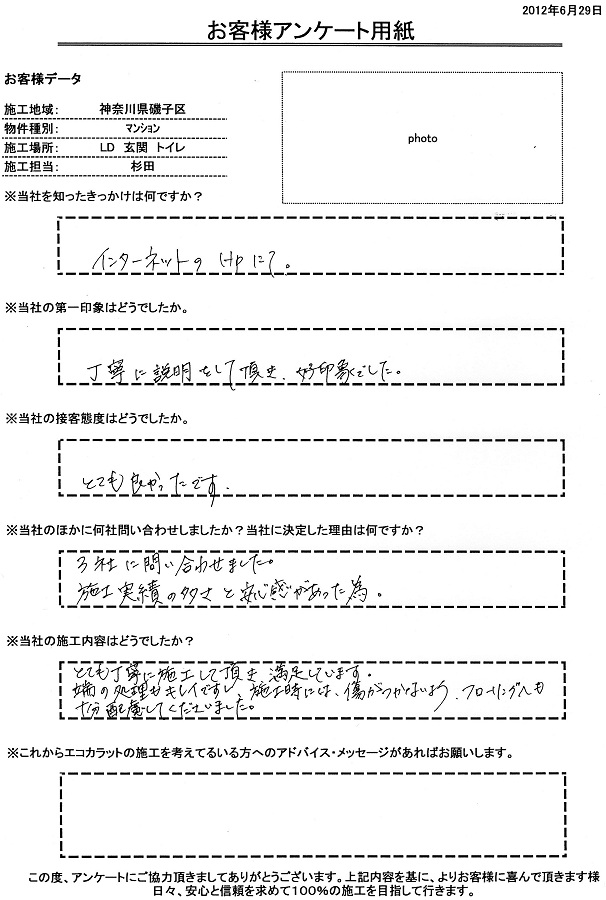 2012年6月29日
お客様アンケート用紙
お客様データ
施工地域： 神奈川県磯子区
物件種別： マンション
施工場所： LD 玄関 トイレ
施工担当： 杉田
photo
※当社を知ったきっかけは何ですか？
インターネットの Hpにて。
※当社の第一印象はどうでしたか。
丁寧に説明をして頂き、好印象でした。
※当社の接客態度はどうでしたか。
とても良かったです。
※当社のほかに何社問い合わせしましたか？当社に決定した理由は何ですか？
3社に問い合わせました。
施工実績の多さと安心感があった為。
※当社の施工内容はどうでしたか？
とても丁寧に施工して頂き、満足しています。
端の処理もキレイですし、施工時には、傷がつかないよう、フローリングへも
十分配慮してくださいました。
※これからエコカラットの施工を考えてるいる方へのアドバイス・メッセージがあればお願いします。
この度、アンケートにご協力頂きましてありがとうございます。上記内容を基に、よりお客様に喜んで頂きます様
日々、安心と信頼を求めて100％の施工を目指して行きます。